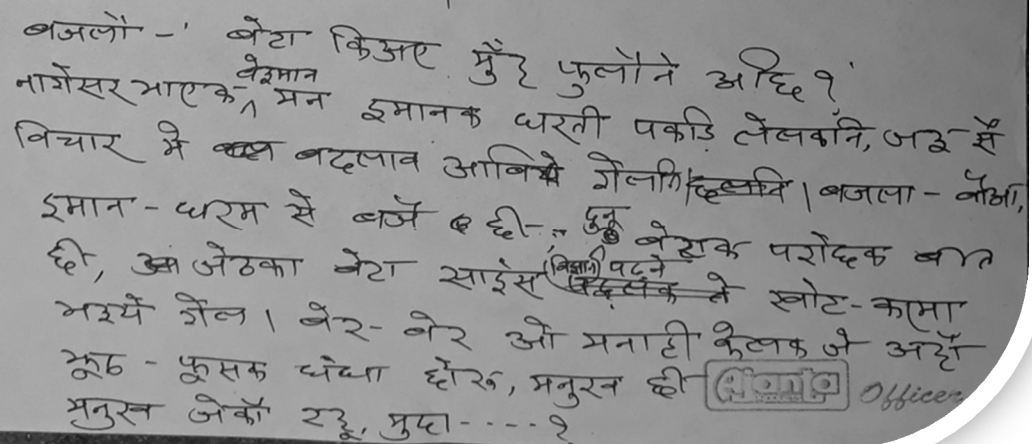 बजलौं -' बेटा किअए मुँह फुलौने अछि?'
नागेसर भाएक बेइमान मन इमानक धरती पकड़ि लेलकनि, जइ सँ
विचार मे बदलाव आबिये गेलनि। बजला - बौआ,
इमान - धरम से बजै छी- दुनू बेटाक परोछक बात
छी, जेठका बेटा साइंस (विज्ञान) पढ़ने खोट-करमा
भइये गेल। बेर-बेर ओ मनाही केलक जे अहाँ
झूठ - फूसक धंधा छोड़ू, मनुख छी
मनुख जेकाँ रहू, मुदा-----?
Ajanta Officer